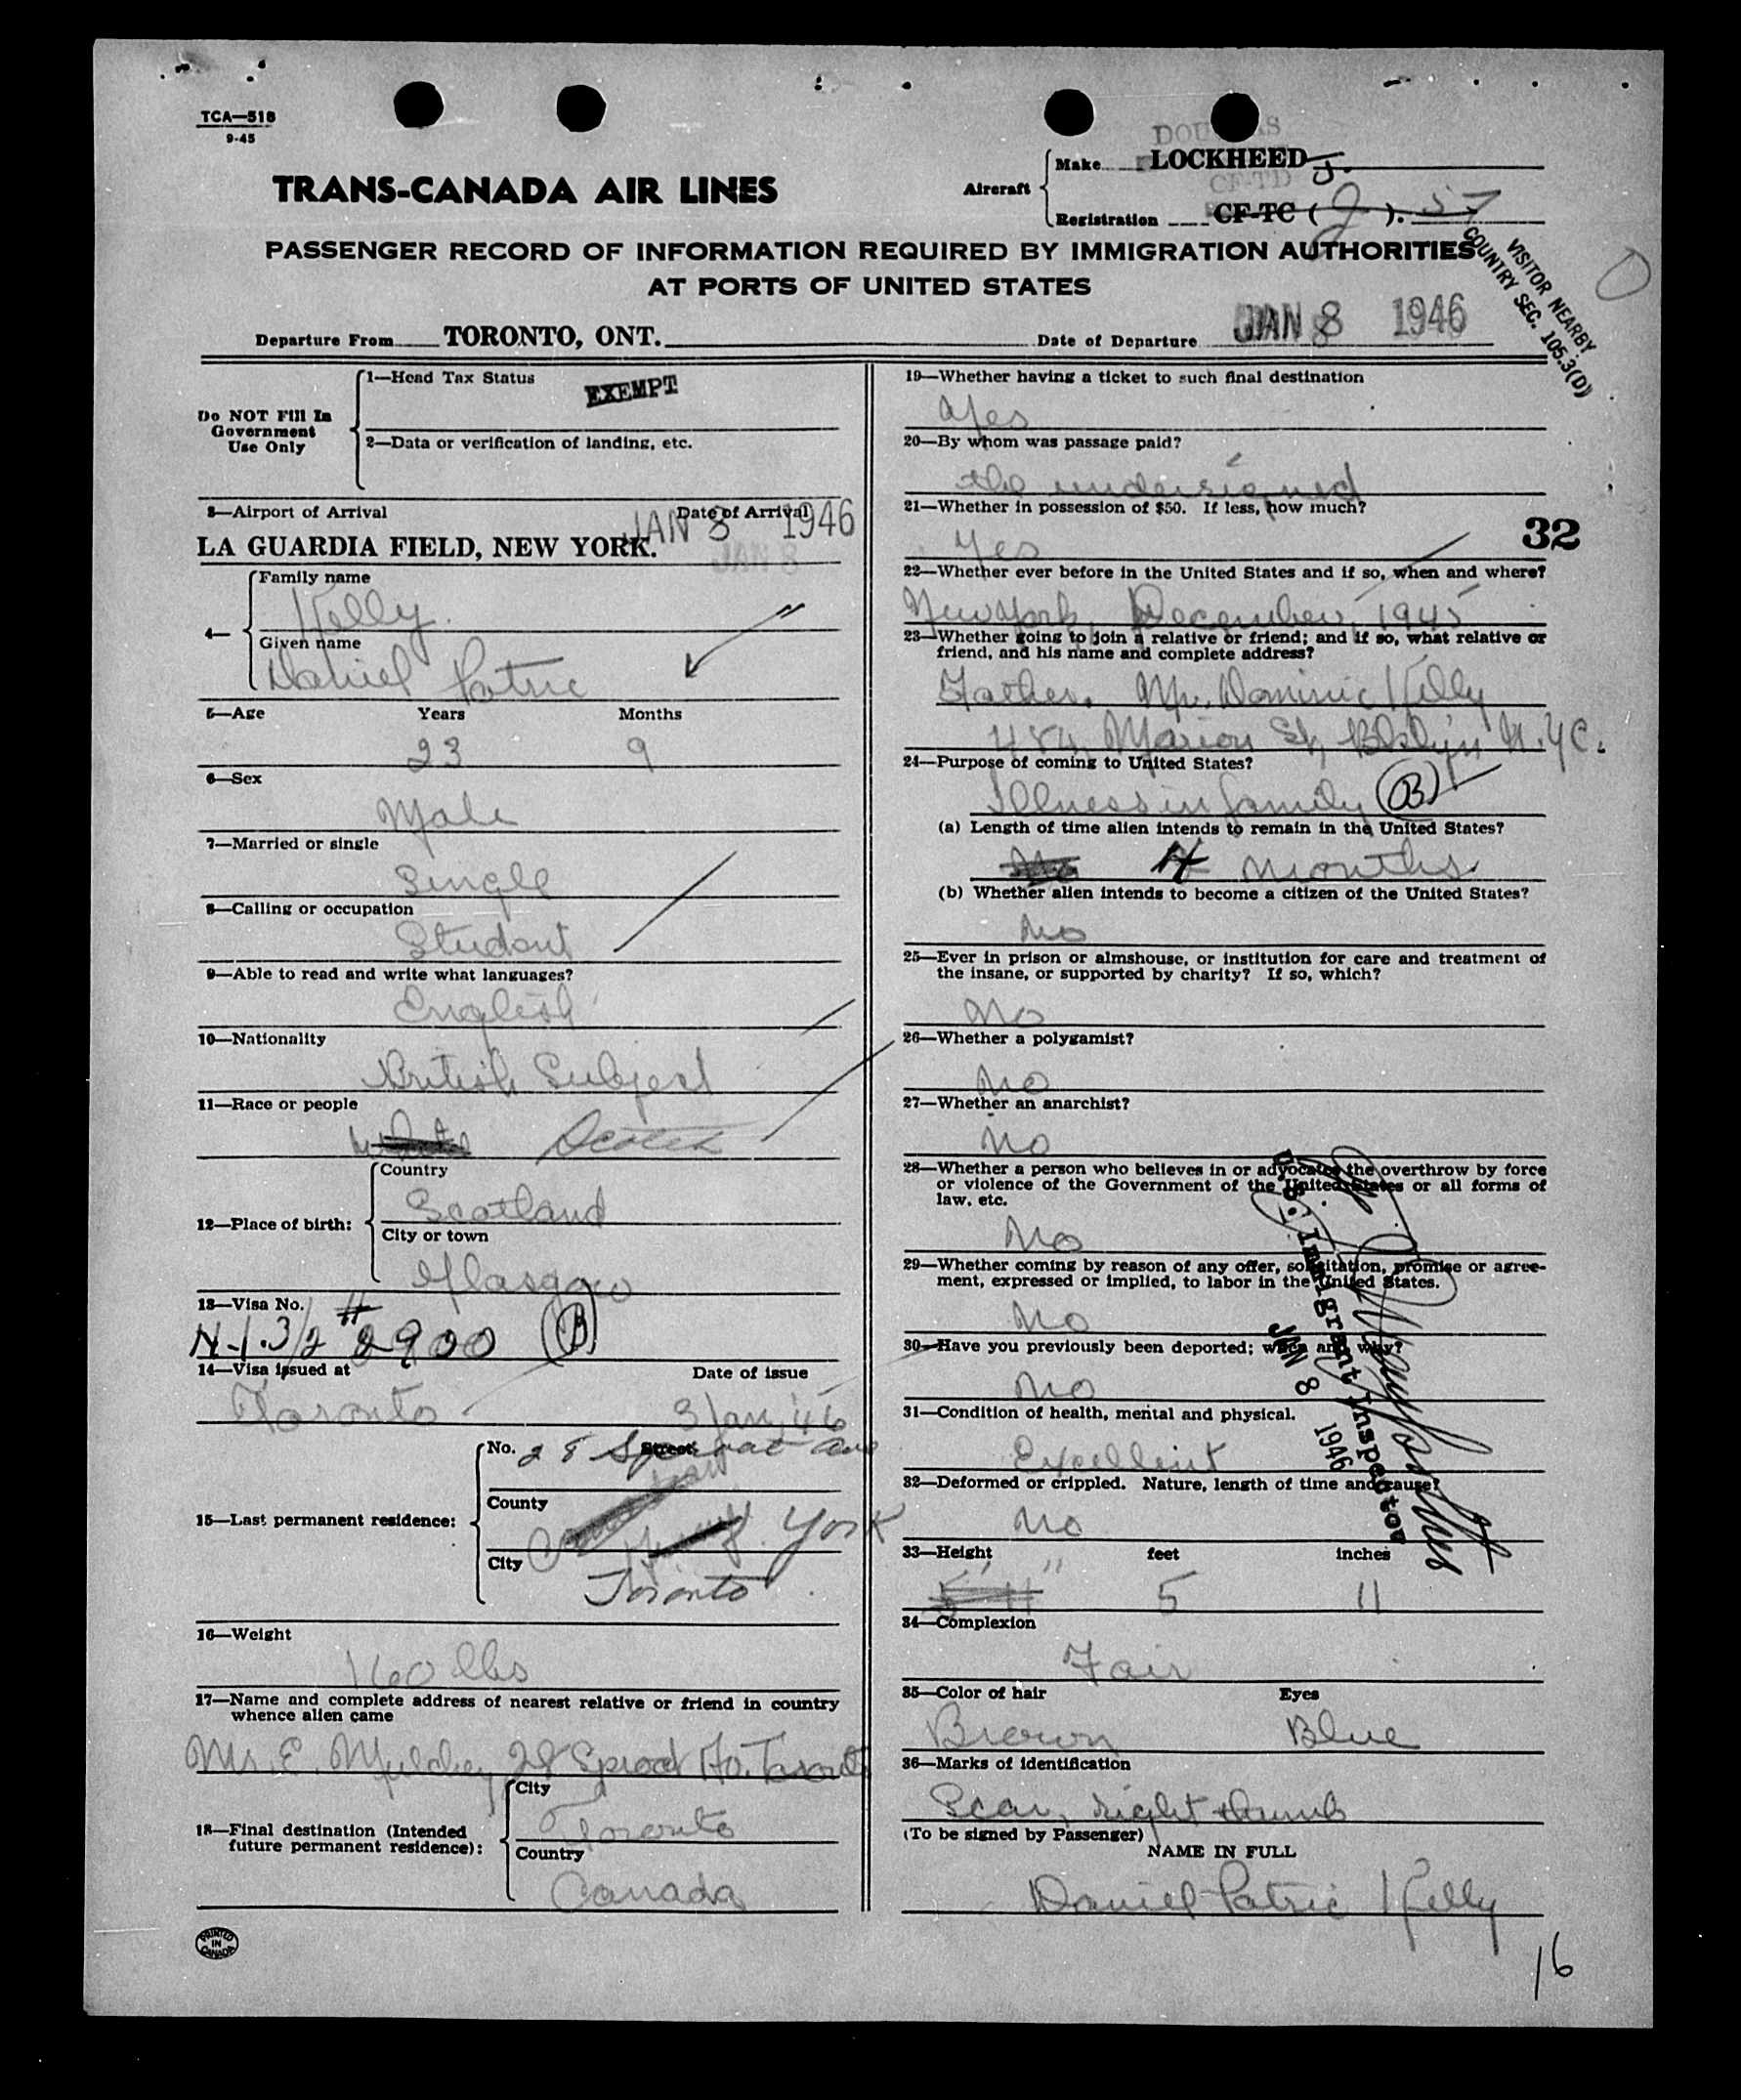 TCA—518
9-45
TRANS-CANADA AIR LINES
Aircraft
Make LOCKHEED
CF-TD
Registration CF-TC ( ). 57
PASSENGER RECORD OF INFORMATION REQUIRED BY IMMIGRATION AUTHORITIES
AT PORTS OF UNITED STATES
VISITOR NEARBY
COUNTRY SEC. 105.3(D)
Departure From TORONTO, ONT.
Date of Departure JAN 8 1946
Do NOT Fill In
Government
Use Only
1—Head Tax Status
EXEMPT
2—Data or verification of landing, etc.
3—Airport of Arrival
Date of Arrival
JAN 8 1946
LA GUARDIA FIELD, NEW YORK.
JAN 8
4—
Family name
Kelly.
Given name
Daniel Patric
5—Age Years Months
23 9
6—Sex
Male
7—Married or single
Single
8—Calling or occupation
Student
9—Able to read and write what languages?
English
10—Nationality
British Subject
11—Race or people
Scotch
12—Place of birth:
Country
Scotland
City or town
Glasgow
13—Visa No.
# 2900 (B)
14—Visa issued at Date of issue
Toronto 3 Jan, 46
15—Last permanent residence:
No. 28 Street Ave
County
York
City
Toronto
16—Weight
160 lbs
17—Name and complete address of nearest relative or friend in country
whence alien came
E. 28
18—Final destination (Intended
future permanent residence):
City
Toronto
Country
Canada
PRINTED
IN
CANADA
19—Whether having a ticket to such final destination
Yes
20—By whom was passage paid?
the undersigned
21—Whether in possession of $50. If less, how much?
Yes
32
22—Whether ever before in the United States and if so, when and where?
New York, December, 1945
23—Whether going to join a relative or friend; and if so, what relative or
friend, and his name and complete address?
Father, Mr. Dominic Kelly
484, Marion St, Bklyn N.Y.C.
24—Purpose of coming to United States?
Illness in family (B)
(a) Length of time alien intends to remain in the United States?
months
(b) Whether alien intends to become a citizen of the United States?
No
25—Ever in prison or almshouse, or institution for care and treatment of
the insane, or supported by charity? If so, which?
No
26—Whether a polygamist?
No
27—Whether an anarchist?
No
28—Whether a person who believes in or advocates the overthrow by force
or violence of the Government of the United States or all forms of
law, etc.
No
29—Whether coming by reason of any offer, solicitation, promise or agree-
ment, expressed or implied, to labor in the United States.
No
30—Have you previously been deported; when and why?
No
U.S. Immigrant Inspector
JAN 8 1946
31—Condition of health, mental and physical.
Excellent
32—Deformed or crippled. Nature, length of time and cause?
No
33—Height feet inches
5' 11" 5 11
34—Complexion
Fair
35—Color of hair Eyes
Brown Blue
36—Marks of identification
Scar, right thumb
(To be signed by Passenger)
NAME IN FULL
Daniel Patric Kelly
16